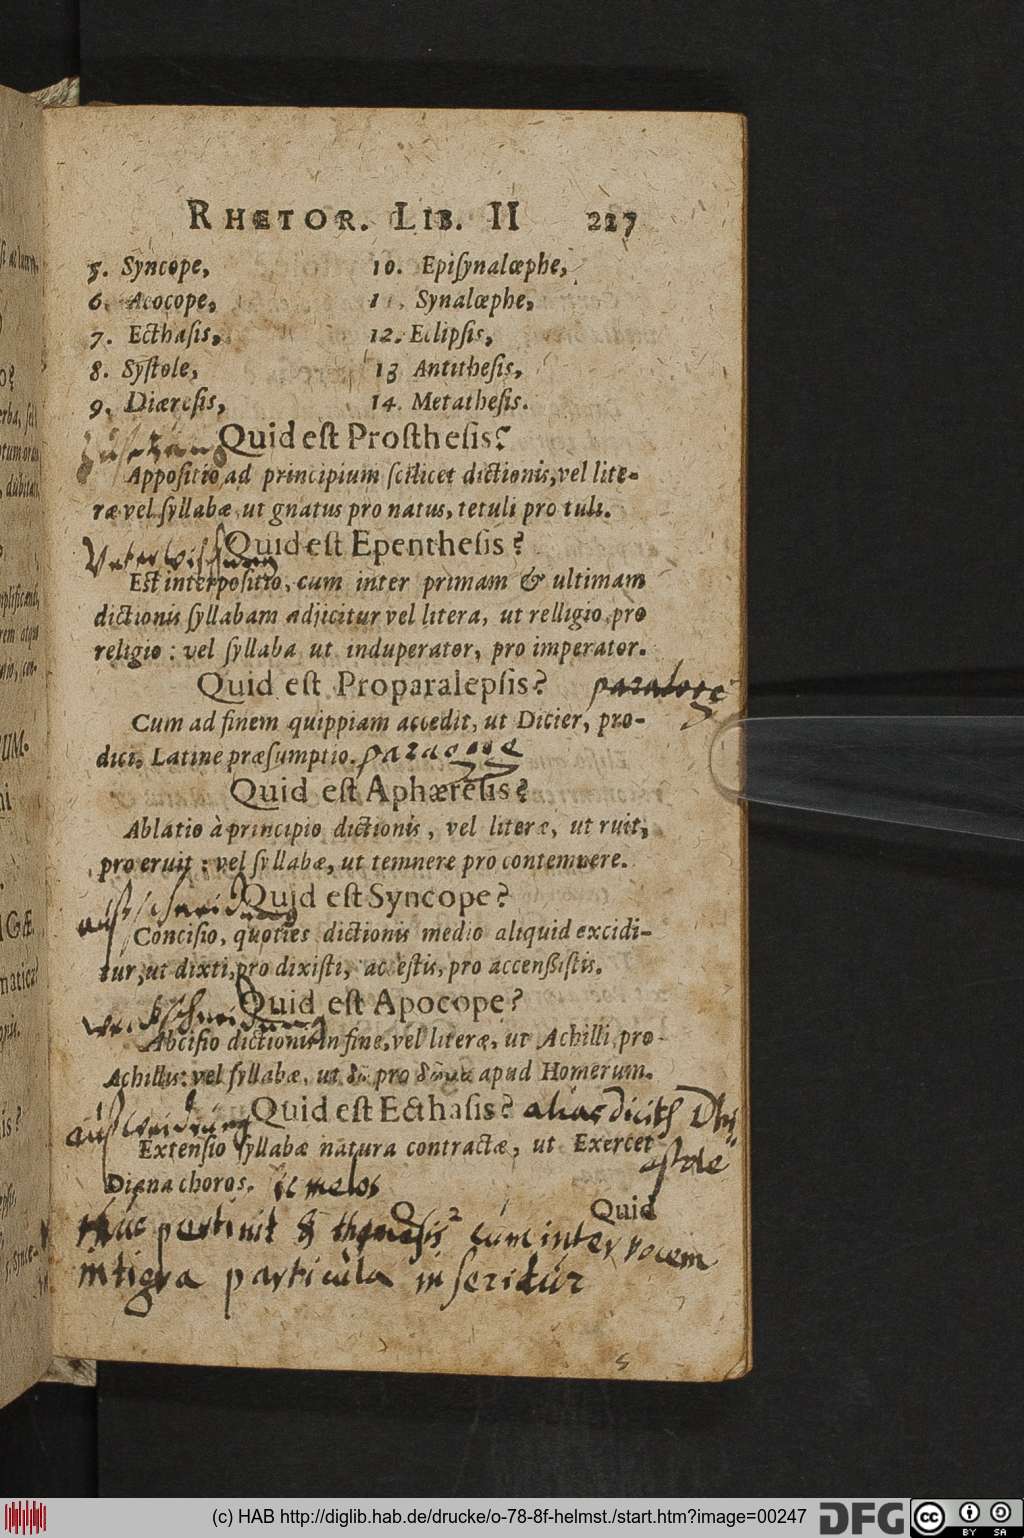 RHETOR. LIB. II 227
5. Syncope, 10. Epiſynalœphe,
6. Acocope, 11. Synalœphe,
7. Ecthaſis, 12. Eclipſis,
8. Syſtole, 13 Antitheſis,
9. Diæreſis, 14. Metatheſis.
Quid eſt Proſtheſis?
Appoſitio ad principium ſcilicet dictionis, vel lite-
ræ vel ſyllabæ ut gnatus pro natus, tetuli pro tuli.
Quid eſt Epentheſis?
Eſt interpoſitio, cum inter primam & ultimam
dictionis ſyllabam adjicitur vel litera, ut relligio pro
religio: vel ſyllaba ut induperator, pro imperator.
Quid eſt Proparalepſis?
Cum ad finem quippiam accedit, ut Dicier, pro-
dici. Latine præſumptio. paragoge
Quid eſt Aphæreſis?
Ablatio à principio dictionis, vel literæ, ut ruit,
pro eruit: vel ſyllabæ, ut temnere pro contemnere.
außſchneidung Quid eſt Syncope?
Conciſio, quoties dictionis medio aliquid excidi-
tur, ut dixti, pro dixiſti, acceſtis, pro accenßiſtis.
Quid eſt Apocope?
Abciſio dictionis in fine, vel literæ, ut Achilli, pro-
Achillis: vel ſyllabæ, ut δῶ pro δῶμα apud Homerum.
Quid eſt Ecthaſis? alias dicitꝭ Dhi-
Extenſio ſyllabæ natura contractæ, ut Exercet
aſtole
Diana choros. ut melos
Quid
Huc pertinit & thmesis cum inter vocem
intigra particula inseritur
(c) HAB http://diglib.hab.de/drucke/o-78-8f-helmst./start.htm?image=00247 DFG cc BY SA